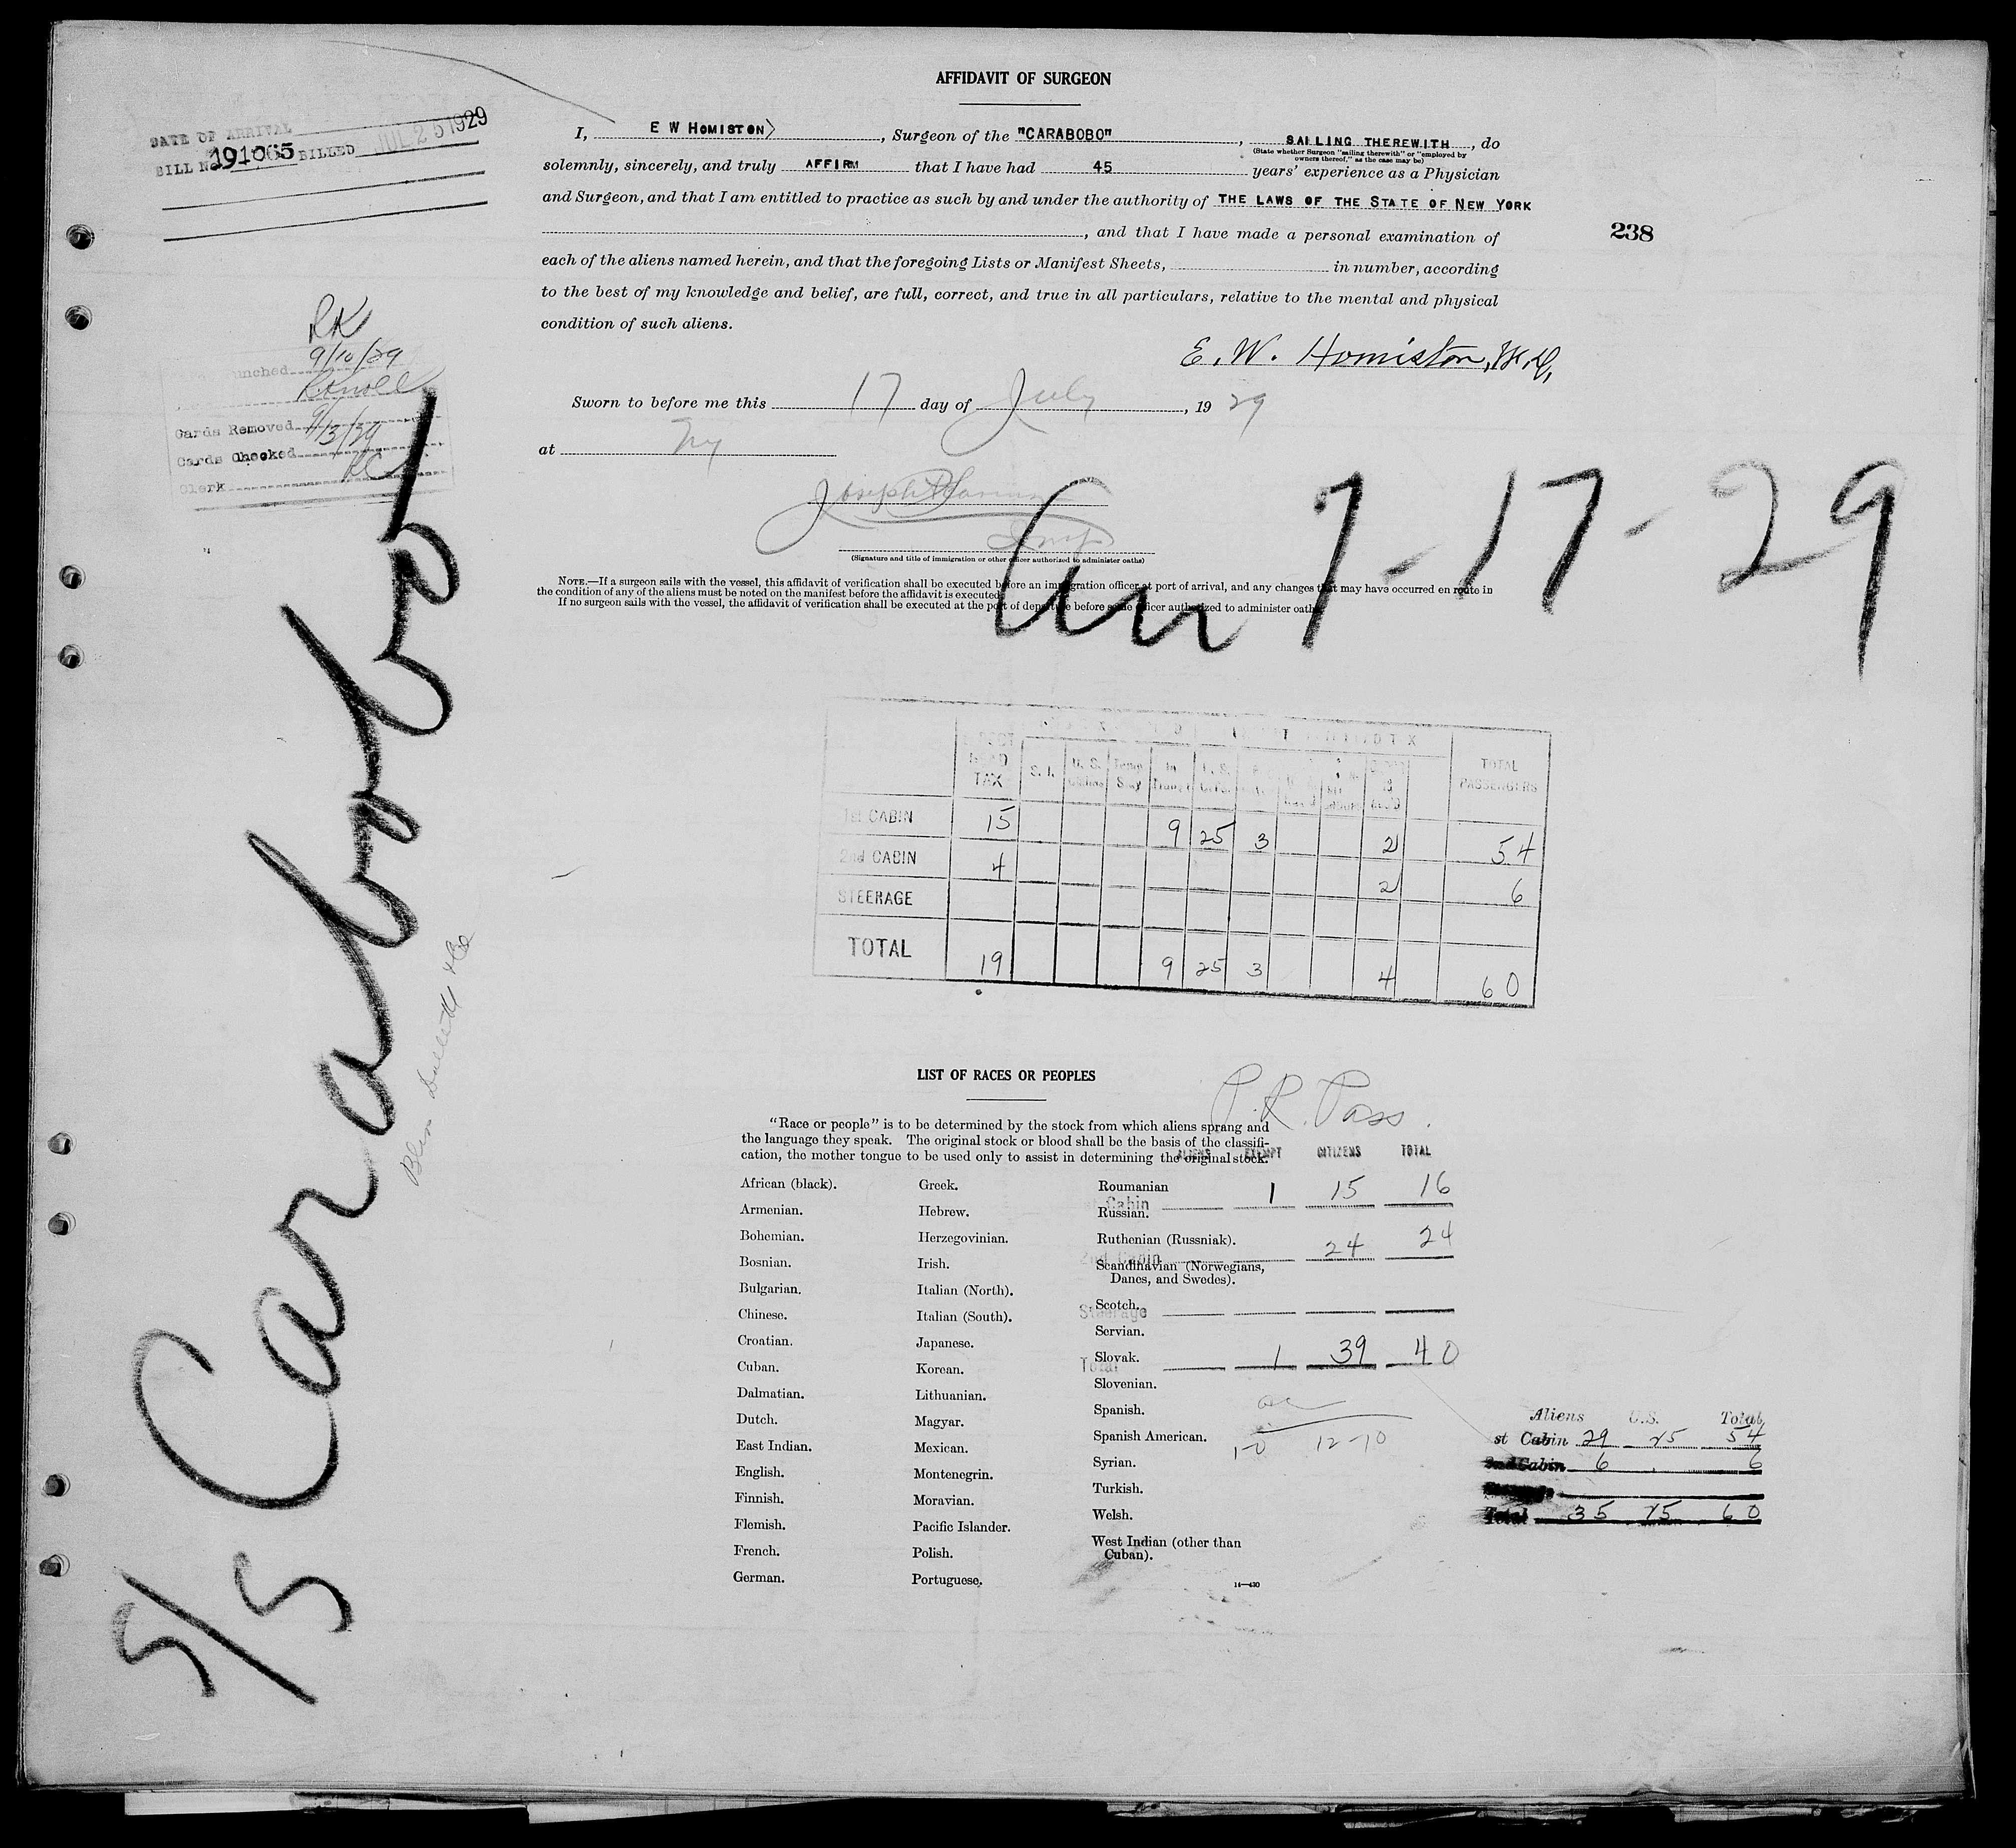 AFFIDAVIT OF SURGEON
DATE OF ARRIVAL
BILL No 191065 BILLED JUL 25 1929
I, E W HOMISTON, Surgeon of the "CARABOBO", SAILING THEREWITH, do
(State whether Surgeon "sailing therewith" or "employed by
owners thereof," as the case may be)
solemnly, sincerely, and truly AFFIRM that I have had 45 years' experience as a Physician
and Surgeon, and that I am entitled to practice as such by and under the authority of THE LAWS OF THE STATE OF NEW YORK
, and that I have made a personal examination of
238
each of the aliens named herein, and that the foregoing Lists or Manifest Sheets, in number, according
to the best of my knowledge and belief, are full, correct, and true in all particulars, relative to the mental and physical
condition of such aliens.
E. W. Homiston, M.D.
RK
9/10/29
unched
Cards Removed 9/13/29
Cards Checked
Clerk
Sworn to before me this 17 day of July, 1929
at NY
Joseph
Insp
(Signature and title of immigration or other officer authorized to administer oaths)
NOTE.—If a surgeon sails with the vessel, this affidavit of verification shall be executed before an immigration officer at port of arrival, and any changes that may have occurred en route in
the condition of any of the aliens must be noted on the manifest before the affidavit is executed.
If no surgeon sails with the vessel, the affidavit of verification shall be executed at the port of departure before some officer authorized to administer oaths.
Arr 7-17-29
S/S Carabobo
TAX S.I. U.S. Temp Stay In TOTAL PASSENGERS
1st CABIN 15 9 25 3 2 54
2nd CABIN 4 2 6
STEERAGE
TOTAL 19 9 25 3 4 60
LIST OF RACES OR PEOPLES
P.R. Pass.
"Race or people" is to be determined by the stock from which aliens sprang and
the language they speak. The original stock or blood shall be the basis of the classifi-
cation, the mother tongue to be used only to assist in determining the original stock.
ALIENS EXEMPT CITIZENS TOTAL
st Cabin 1 15 16
2nd Cabin 24 24
Steerage
Total 1 39 40
African (black).
Armenian.
Bohemian.
Bosnian.
Bulgarian.
Chinese.
Croatian.
Cuban.
Dalmatian.
Dutch.
East Indian.
English.
Finnish.
Flemish.
French.
German.
Greek.
Hebrew.
Herzegovinian.
Irish.
Italian (North).
Italian (South).
Japanese.
Korean.
Lithuanian.
Magyar.
Mexican.
Montenegrin.
Moravian.
Pacific Islander.
Polish.
Portuguese.
Roumanian
Russian.
Ruthenian (Russniak).
Scandinavian (Norwegians,
Danes, and Swedes).
Scotch.
Servian.
Slovak.
Slovenian.
Spanish.
Spanish American.
Syrian.
Turkish.
Welsh.
West Indian (other than
Cuban).
14—430
1-0 12-10
Aliens U.S. Total
st Cabin 29 25 54
2nd Cabin 6 6
Total 35 25 60